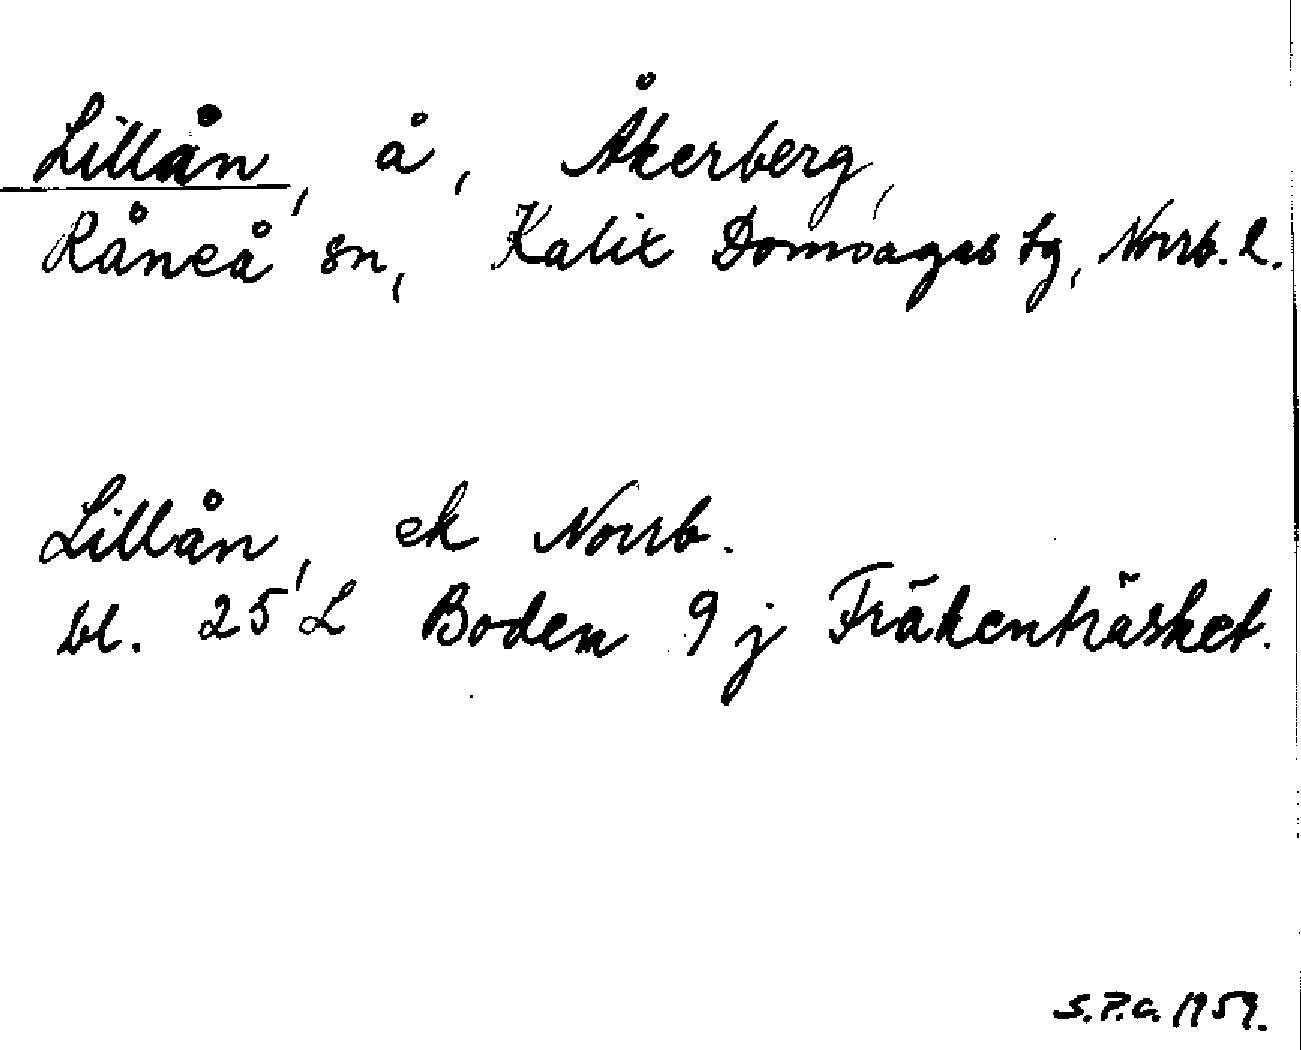 Lillån, å, Åkerberg,
Råneå sn, Kalix Domsagas tg, Norrb. l.
Lillån, ek Norrb.
bl. 25 L Boden 9 j Fräkenträsket.
S.P.G. 1959.